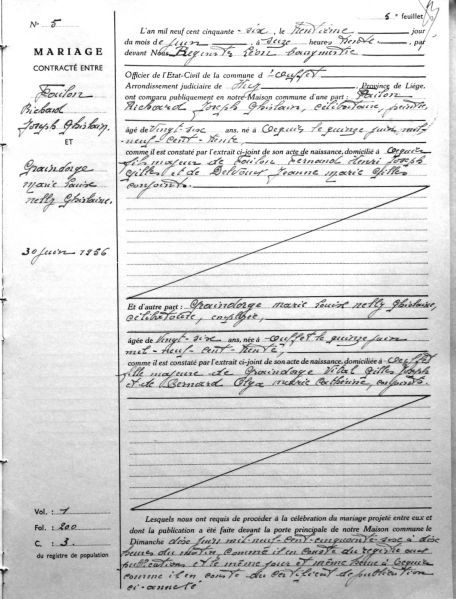 N° 5
5e feuillet
MARIAGE
CONTRACTÉ ENTRE
Foulon
Richard
Joseph Ghislain
ET
Graindorge
marie Louise
nelly Ghislaine.
30 juin 1956
L'an mil neuf cent cinquante-six, le trentième jour
du mois de juin, à seize heures trente, par
devant Nous,
Officier de l'Etat-Civil de la commune d'Ouffet
Arrondissement judiciaire de Huy Province de Liège,
ont comparu publiquement en notre Maison commune d'une part : Foulon
Richard Joseph Ghislain, célibataire,
âgé de vingt-six ans, né à Ocquier le quinze juin mil-
neuf-cent-trente,
comme il est constaté par l'extrait ci-joint de son acte de naissance, domicilié à Ocquier
fils majeur de Foulon Fernand Henri Joseph
Gilles et de Jeanne Marie Gilles
conjoints.
Et d'autre part : Graindorge marie Louise nelly Ghislaine,
célibataire, employée,
âgée de vingt-six ans, née à Ouffet le quinze juin
mil-neuf-cent-trente,
comme il est constaté par l'extrait ci-joint de son acte de naissance, domiciliée à Ouffet
fille majeure de Graindorge Vital Gilles Joseph
et de Bernard Olga marie Catherine, conjoints.
Lesquels nous ont requis de procéder à la célébration du mariage projeté entre eux et
dont la publication a été faite devant la porte principale de notre Maison commune le
Dimanche dix juin mil-neuf-cent-cinquante-six à dix
heures du matin, comme il en conste du registre aux
publications et le même jour et même heure à Ocquier
comme il en conste du certificat de publication
ci-annexé
Vol. : 1
Fol. : 200
C. : 3.
du registre de population